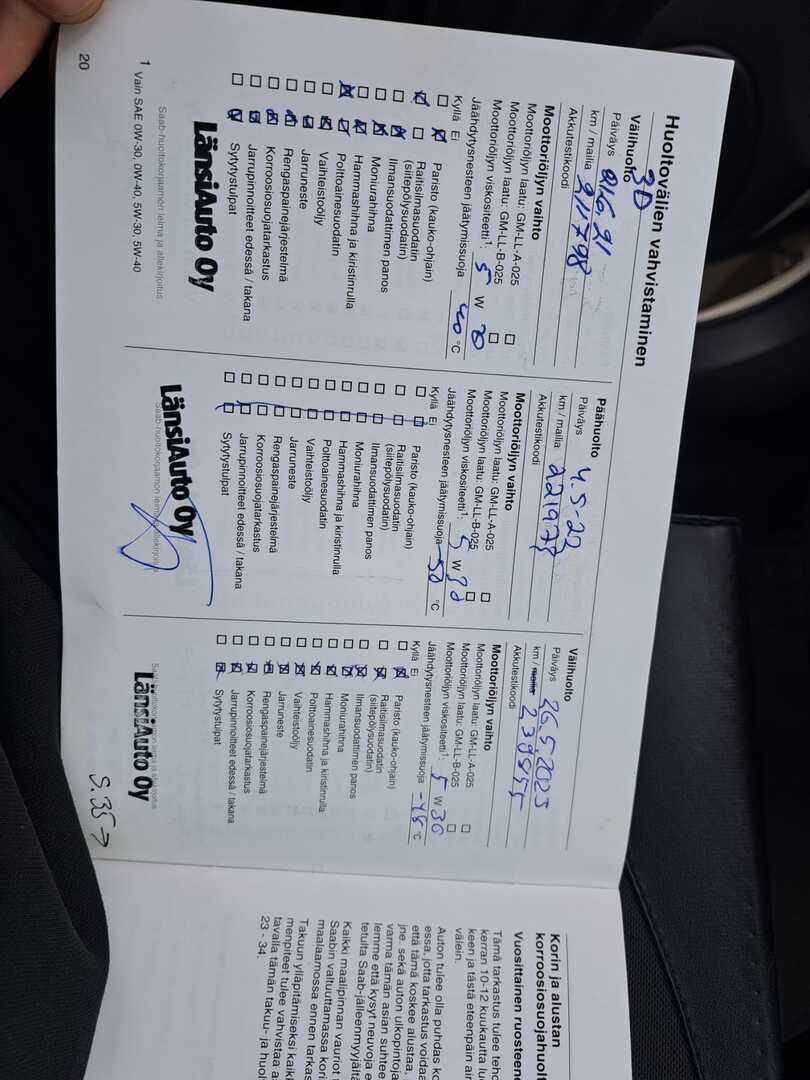 Huoltovälien vahvistaminen
3D
Välihuolto
Päiväys 2/6.21
km / mailia 211798
Akkutestikoodi
Moottoriöljyn vaihto
Moottoriöljyn laatu: GM-LL-A-025 ☐
Moottoriöljyn laatu: GM-LL-B-025 ☐
Moottoriöljyn viskositeetti¹: 5 W 30
Jäähdytysnesteen jäätymissuoja -40 °C
Kyllä Ei
Paristo (kauko-ohjain)
Raitisilmasuodatin
(siitepölysuodatin)
Ilmansuodattimen panos
Moniurahihna
Hammashihna ja kiristinrulla
Polttoainesuodatin
Vaihteistoöljy
Jarruneste
Rengaspainejärjestelmä
Korroosiosuojatarkastus
Jarrupinnoitteet edessä / takana
Sytytystulpat
LänsiAuto Oy
Saab-huoltokorjaamon leima ja allekirjoitus
1 Vain SAE 0W-30, 0W-40, 5W-30, 5W-40
20
Päähuolto
Päiväys 4.5-23
km / mailia
Akkutestikoodi
Moottoriöljyn vaihto
Moottoriöljyn laatu: GM-LL-A-025 ☐
Moottoriöljyn laatu: GM-LL-B-025 ☐
Moottoriöljyn viskositeetti¹: 5 W 30
Jäähdytysnesteen jäätymissuoja -50 °C
Kyllä Ei
Paristo (kauko-ohjain)
Raitisilmasuodatin
(siitepölysuodatin)
Ilmansuodattimen panos
Moniurahihna
Hammashihna ja kiristinrulla
Polttoainesuodatin
Vaihteistoöljy
Jarruneste
Rengaspainejärjestelmä
Korroosiosuojatarkastus
Jarrupinnoitteet edessä / takana
Sytytystulpat
LänsiAuto Oy
Saab-huoltokorjaamon leima ja allekirjoitus
Välihuolto
Päiväys 26.5.2025
km / mailia
Akkutestikoodi
Moottoriöljyn vaihto
Moottoriöljyn laatu: GM-LL-A-025 ☐
Moottoriöljyn laatu: GM-LL-B-025 ☐
Moottoriöljyn viskositeetti¹: 5 W 30
Jäähdytysnesteen jäätymissuoja -48 °C
Kyllä Ei
Paristo (kauko-ohjain)
Raitisilmasuodatin
(siitepölysuodatin)
Ilmansuodattimen panos
Moniurahihna
Hammashihna ja kiristinrulla
Polttoainesuodatin
Vaihteistoöljy
Jarruneste
Rengaspainejärjestelmä
Korroosiosuojatarkastus
Jarrupinnoitteet edessä / takana
Sytytystulpat
LänsiAuto Oy
S.35→
Korin ja alustan
korroosiosuojahuolt
Vuosittainen ruosteene
Tämä tarkastus tulee teho
kerran 10-12 kuukautta lu
keen ja tästä eteenpäin ain
välein.
Auton tulee olla puhdas ko
essa, jotta tarkastus voidaa
että tämä koskee alustaa,
jne. sekä auton ulkopintoja
varma tämän asian suhtee
lemme että kysyt neuvoja e
tetulta Saab-jälleenmyyjältä
Kaikki maalipinnan vauriot
Saabin valtuuttamassa kori
maalaamossa ennen tarkas
Takuun ylläpitämiseksi kaikk
menpiteet tulee vahvistaa as
tavalla tämän takuu- ja huol
23 - 34.